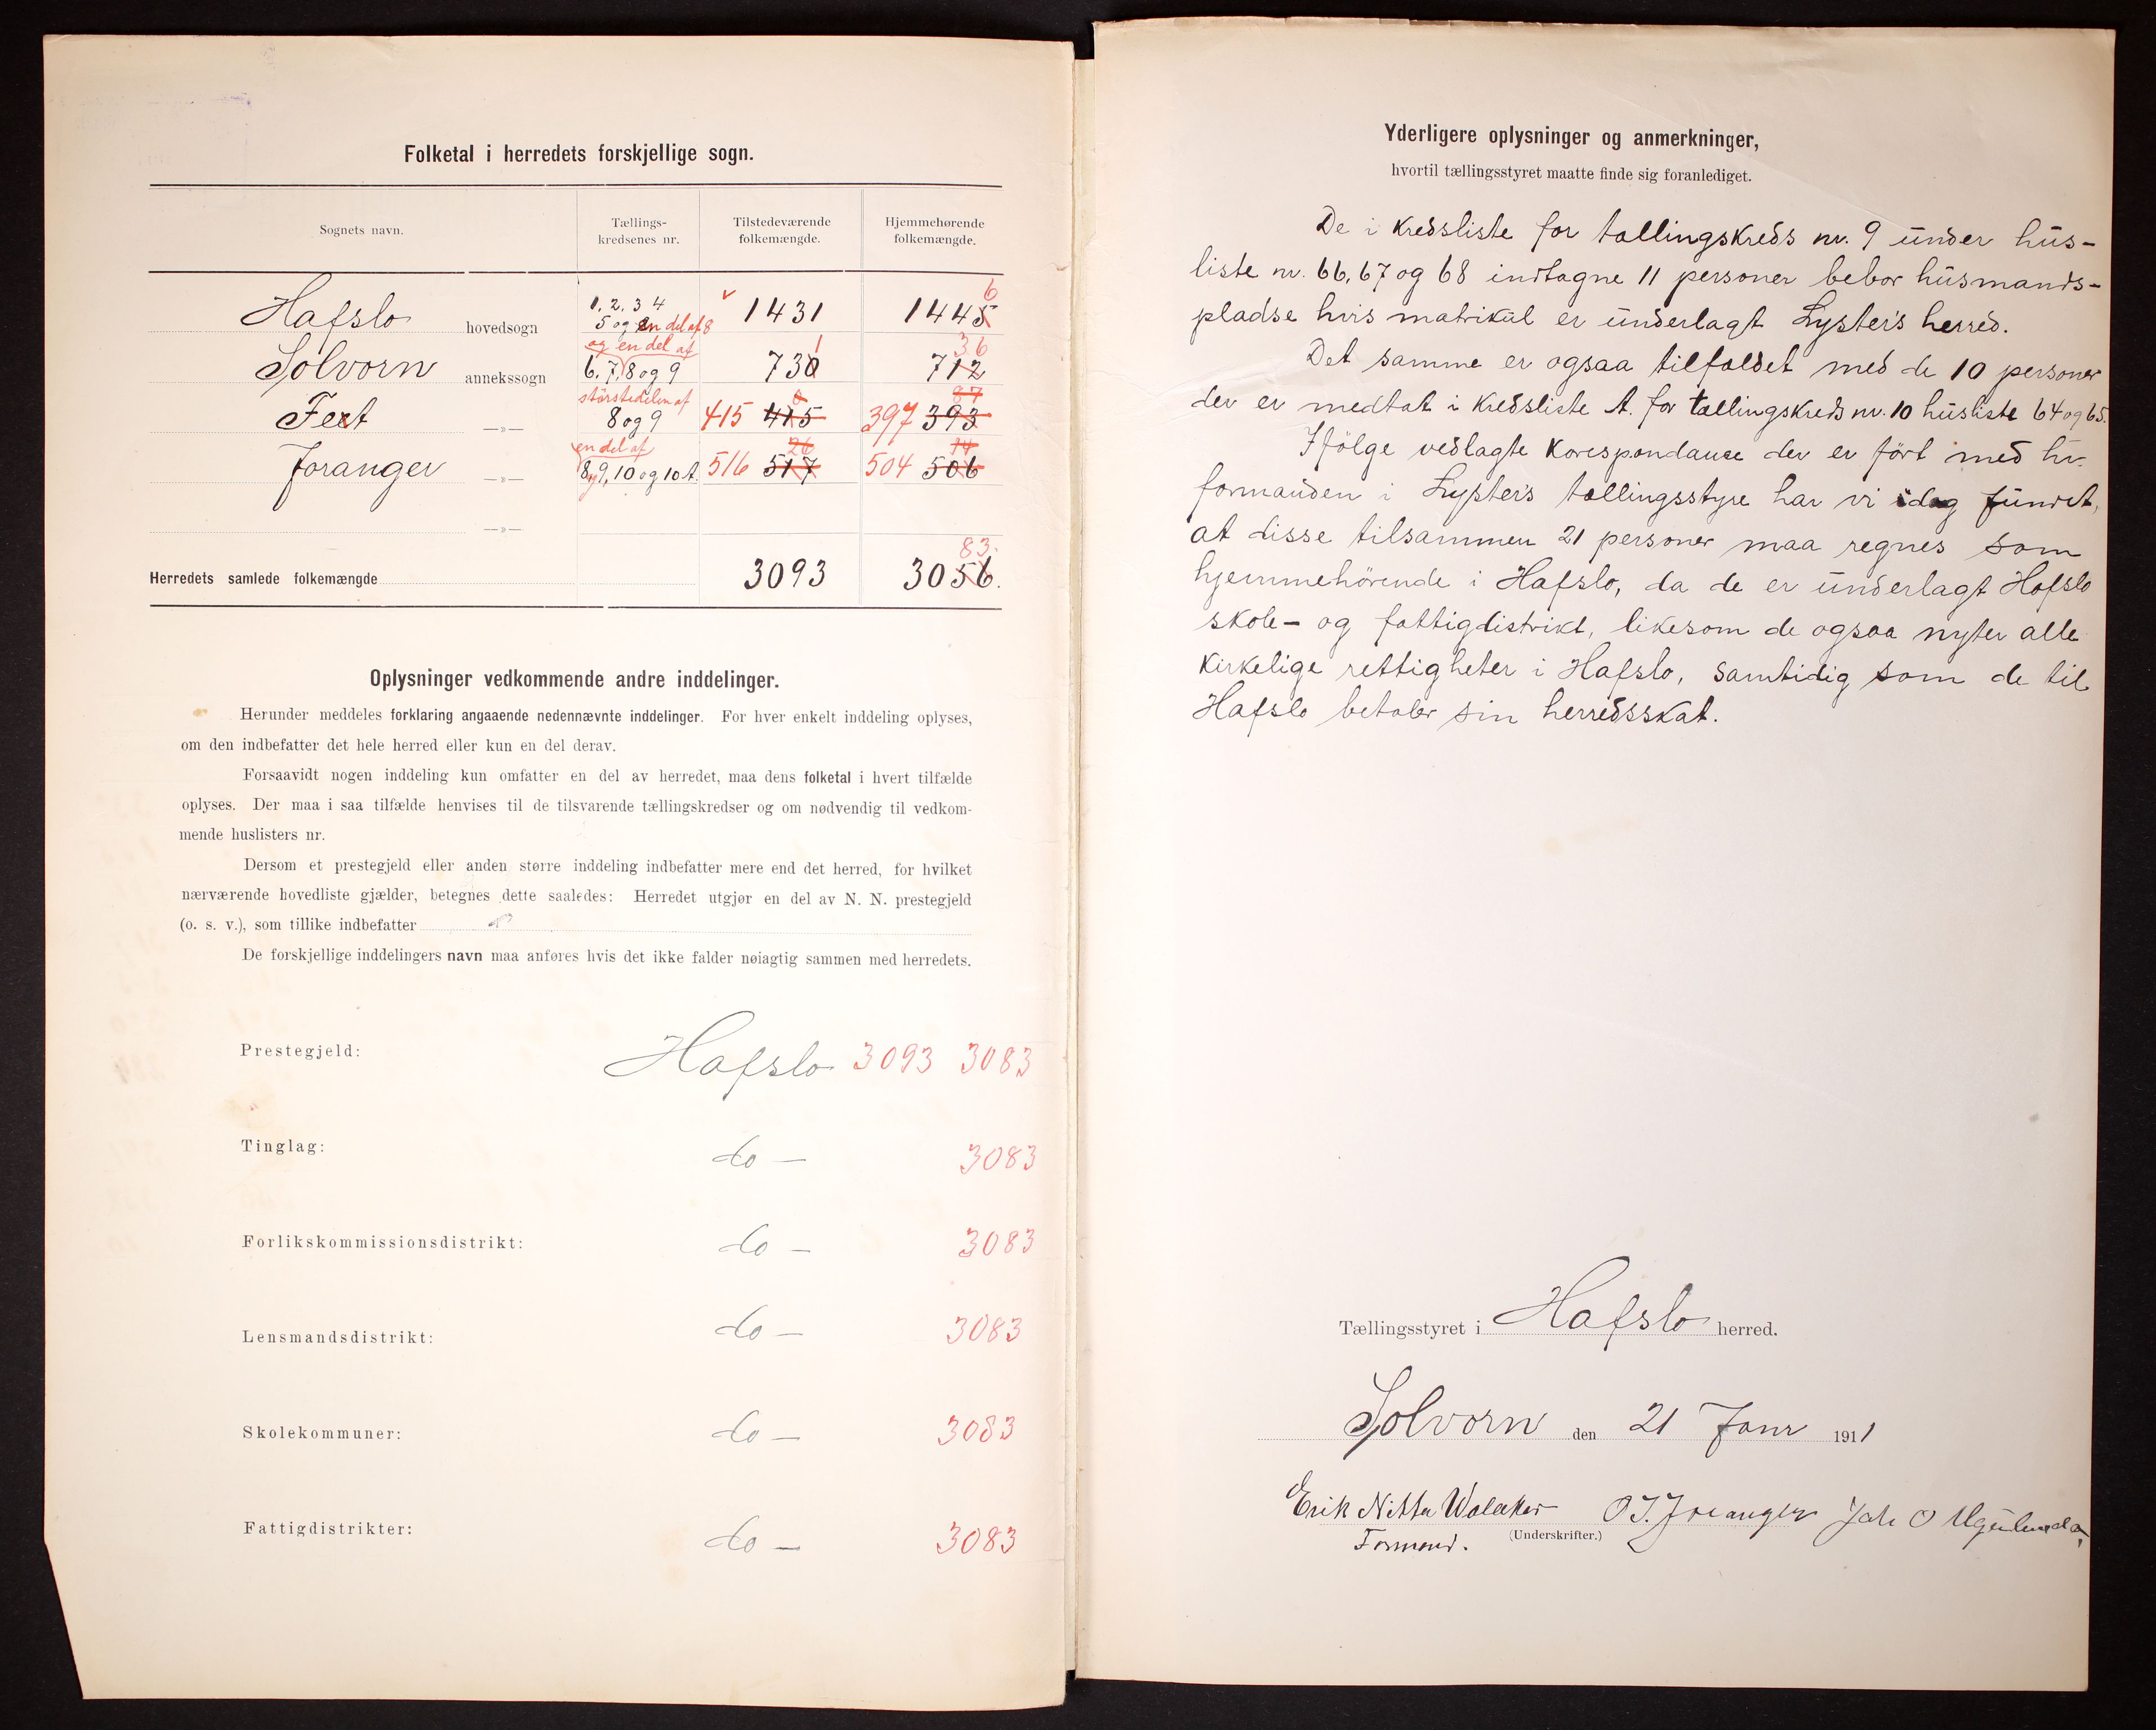 Folketal i herredets forskjellige sogn.
Sognets navn.
Tællings-
kredsenes nr.
Tilstedeværende
folkemængde.
Hjemmehørende
folkemængde.
Hafslo hovedsogn 1, 2, 3 4 1431 1445 6
5 og en del af 8
og en del af
Solvorn annekssogn 6, 7, 8 og 9 730 1 712 36
størstedelen af
Fet —»— 8 og 9 415 415 397 393 87
en del af
Joranger —»— 8, 9, 10 og 10 A. 516 517 26 504 506 14
—»—
Herredets samlede folkemængde 3093 3056. 83.
Oplysninger vedkommende andre inddelinger.
Herunder meddeles forklaring angaaende nedennævnte inddelinger. For hver enkelt inddeling oplyses,
om den indbefatter det hele herred eller kun en del derav.
Forsaavidt nogen inddeling kun omfatter en del av herredet, maa dens folketal i hvert tilfælde
oplyses. Der maa i saa tilfælde henvises til de tilsvarende tællingskredser og om nødvendig til vedkom-
mende huslisters nr.
Dersom et prestegjeld eller anden større inddeling indbefatter mere end det herred, for hvilket
nærværende hovedliste gjælder, betegnes dette saaledes: Herredet utgjør en del av N. N. prestegjeld
(o. s. v.), som tillike indbefatter
De forskjellige inddelingers navn maa anføres hvis det ikke falder nøiagtig sammen med herredets.
Prestegjeld: Hafslo 3093 3083
Tinglag: do — 3083
Forlikskommissionsdistrikt: do — 3083
Lensmandsdistrikt: do — 3083
Skolekommuner: do — 3083
Fattigdistrikter: do — 3083
Yderligere oplysninger og anmerkninger,
hvortil tællingsstyret maatte finde sig foranlediget.
De i kredsliste for tællingskreds nr. 9 under hus-
liste nr. 66, 67 og 68 indtagne 11 personer bebor husmands-
pladse hvis matrikul er underlagt Lyster's herred.
Det samme er ogsaa tilfældet med de 10 personer
der er medtat i kredsliste A. for tællingskreds nr. 10 husliste 64 og 65.
Ifölge vedlagte korespondance der er fört med hr.
formanden i Lyster's tællingsstyre har vi idag fundet,
at disse tilsammen 21 personer maa regnes som
hjemmehörende i Hafslo, da de er underlagt Hafslo
skole- og fattigdistrikt, likesom de ogsaa nyter alle
kirkelige rettigheter i Hafslo, samtidig som de til
Hafslo betaler sin herredsskat.
Tællingsstyret i Hafslo herred.
Solvorn den 21 Janr 1911
Erik Nitter Walaker O J. Joranger Joh O
Formand. (Underskrifter.)